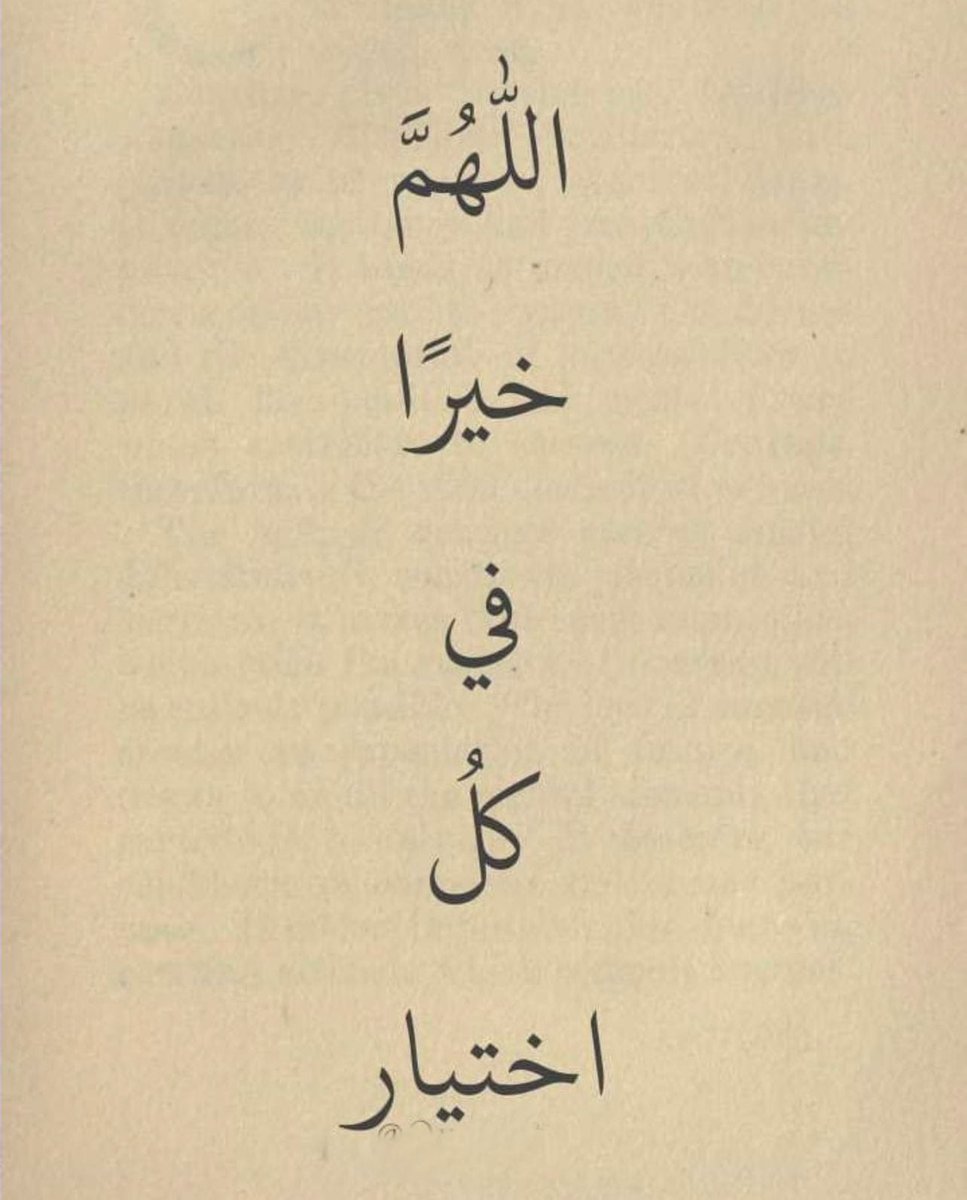 اللّٰهُمَّ
خيرًا
في
كلُ
اختيار